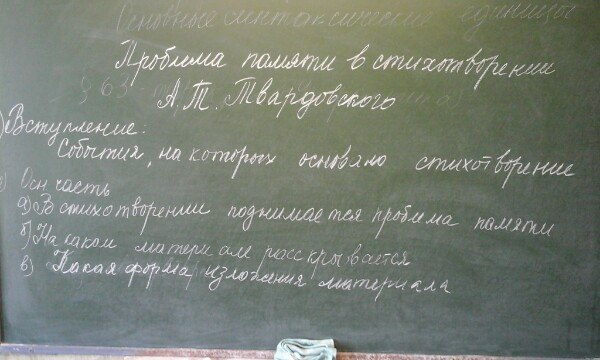 Основные синтаксические единицы
Проблема памяти в стихотворении
§ 63
А. Т. Твардовского
) Вступление:
События, на которых основано стихотворение
) Осн часть
а) В стихотворении поднимается проблема памяти
б) На каком материале расскрывается
в) Какая форма изложения материала